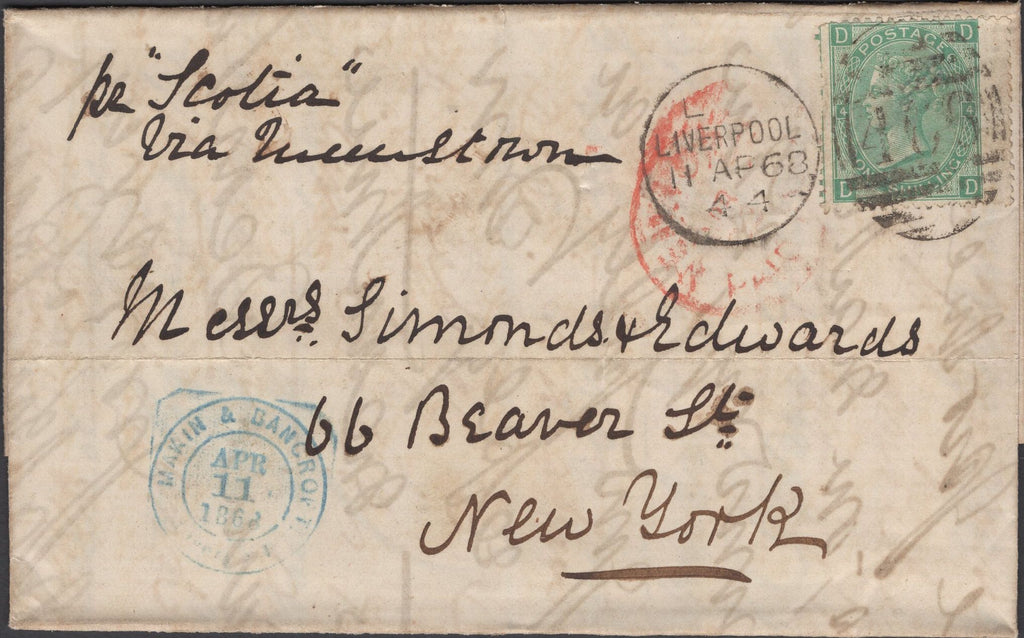 pr "Scotia"
Via Queenstown
L
LIVERPOOL
11 AP 68
44
D D
POSTAGE
D D
Messrs. Simonds & Edwards
66 Beaver St.
New York
MAKIN & BANCROFT
APR
11
1868